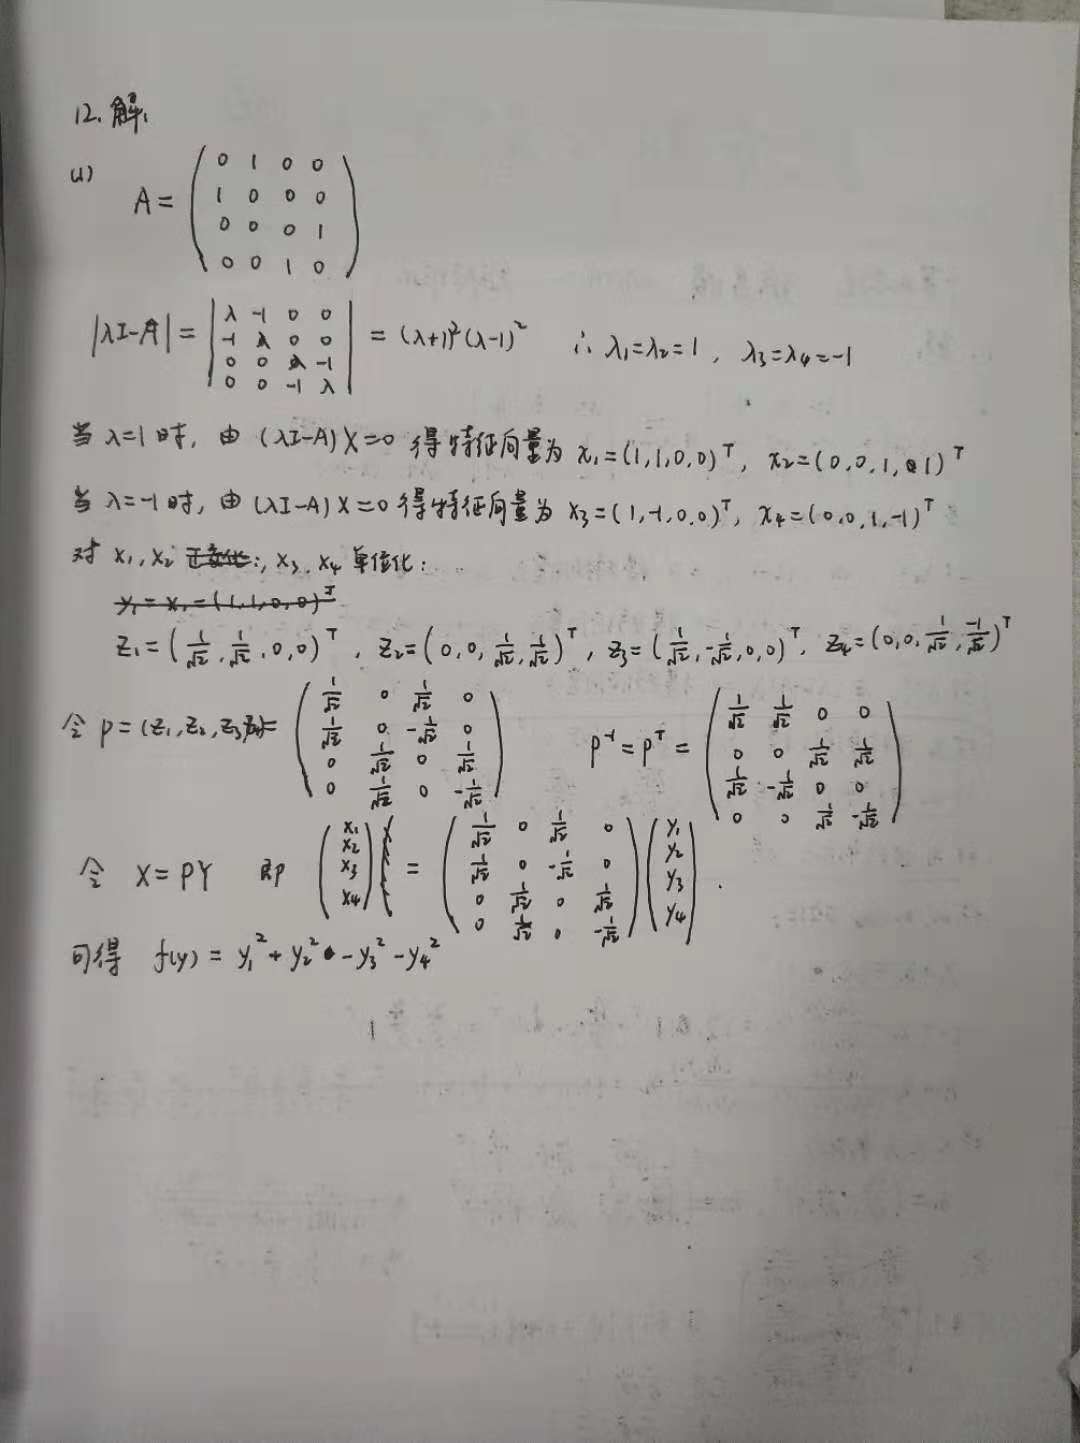 12. 解:
(1)
A = ( 0 1 0 0
1 0 0 0
0 0 0 1
0 0 1 0 )
|λI-A| = | λ -1 0 0
-1 λ 0 0
0 0 λ -1
0 0 -1 λ | = (λ+1)²(λ-1)² ∴ λ₁=λ₂=1, λ₃=λ₄=-1
当 λ=1 时, 由 (λI-A)X=0 得特征向量为 x₁=(1,1,0,0)ᵀ, x₂=(0,0,1,1)ᵀ
当 λ=-1 时, 由 (λI-A)X=0 得特征向量为 x₃=(1,-1,0,0)ᵀ, x₄=(0,0,1,-1)ᵀ
对 x₁, x₂ 正交化:, x₃, x₄ 单位化:
y₁=x₁=(1,1,0,0)ᵀ
z₁=(1/√2, 1/√2, 0, 0)ᵀ, z₂=(0, 0, 1/√2, 1/√2)ᵀ, z₃=(1/√2, -1/√2, 0, 0)ᵀ, z₄=(0, 0, 1/√2, -1/√2)ᵀ
令 P=(z₁,z₂,z₃,z₄)= ( 1/√2 0 1/√2 0
1/√2 0 -1/√2 0
0 1/√2 0 1/√2
0 1/√2 0 -1/√2 )
P⁻¹=Pᵀ= ( 1/√2 1/√2 0 0
0 0 1/√2 1/√2
1/√2 -1/√2 0 0
0 0 1/√2 -1/√2 )
令 X=PY 即 ( x₁
x₂
x₃
x₄ ) = ( 1/√2 0 1/√2 0
1/√2 0 -1/√2 0
0 1/√2 0 1/√2
0 1/√2 0 -1/√2 ) ( y₁
y₂
y₃
y₄ ).
可得 f(y) = y₁²+y₂²-y₃²-y₄²